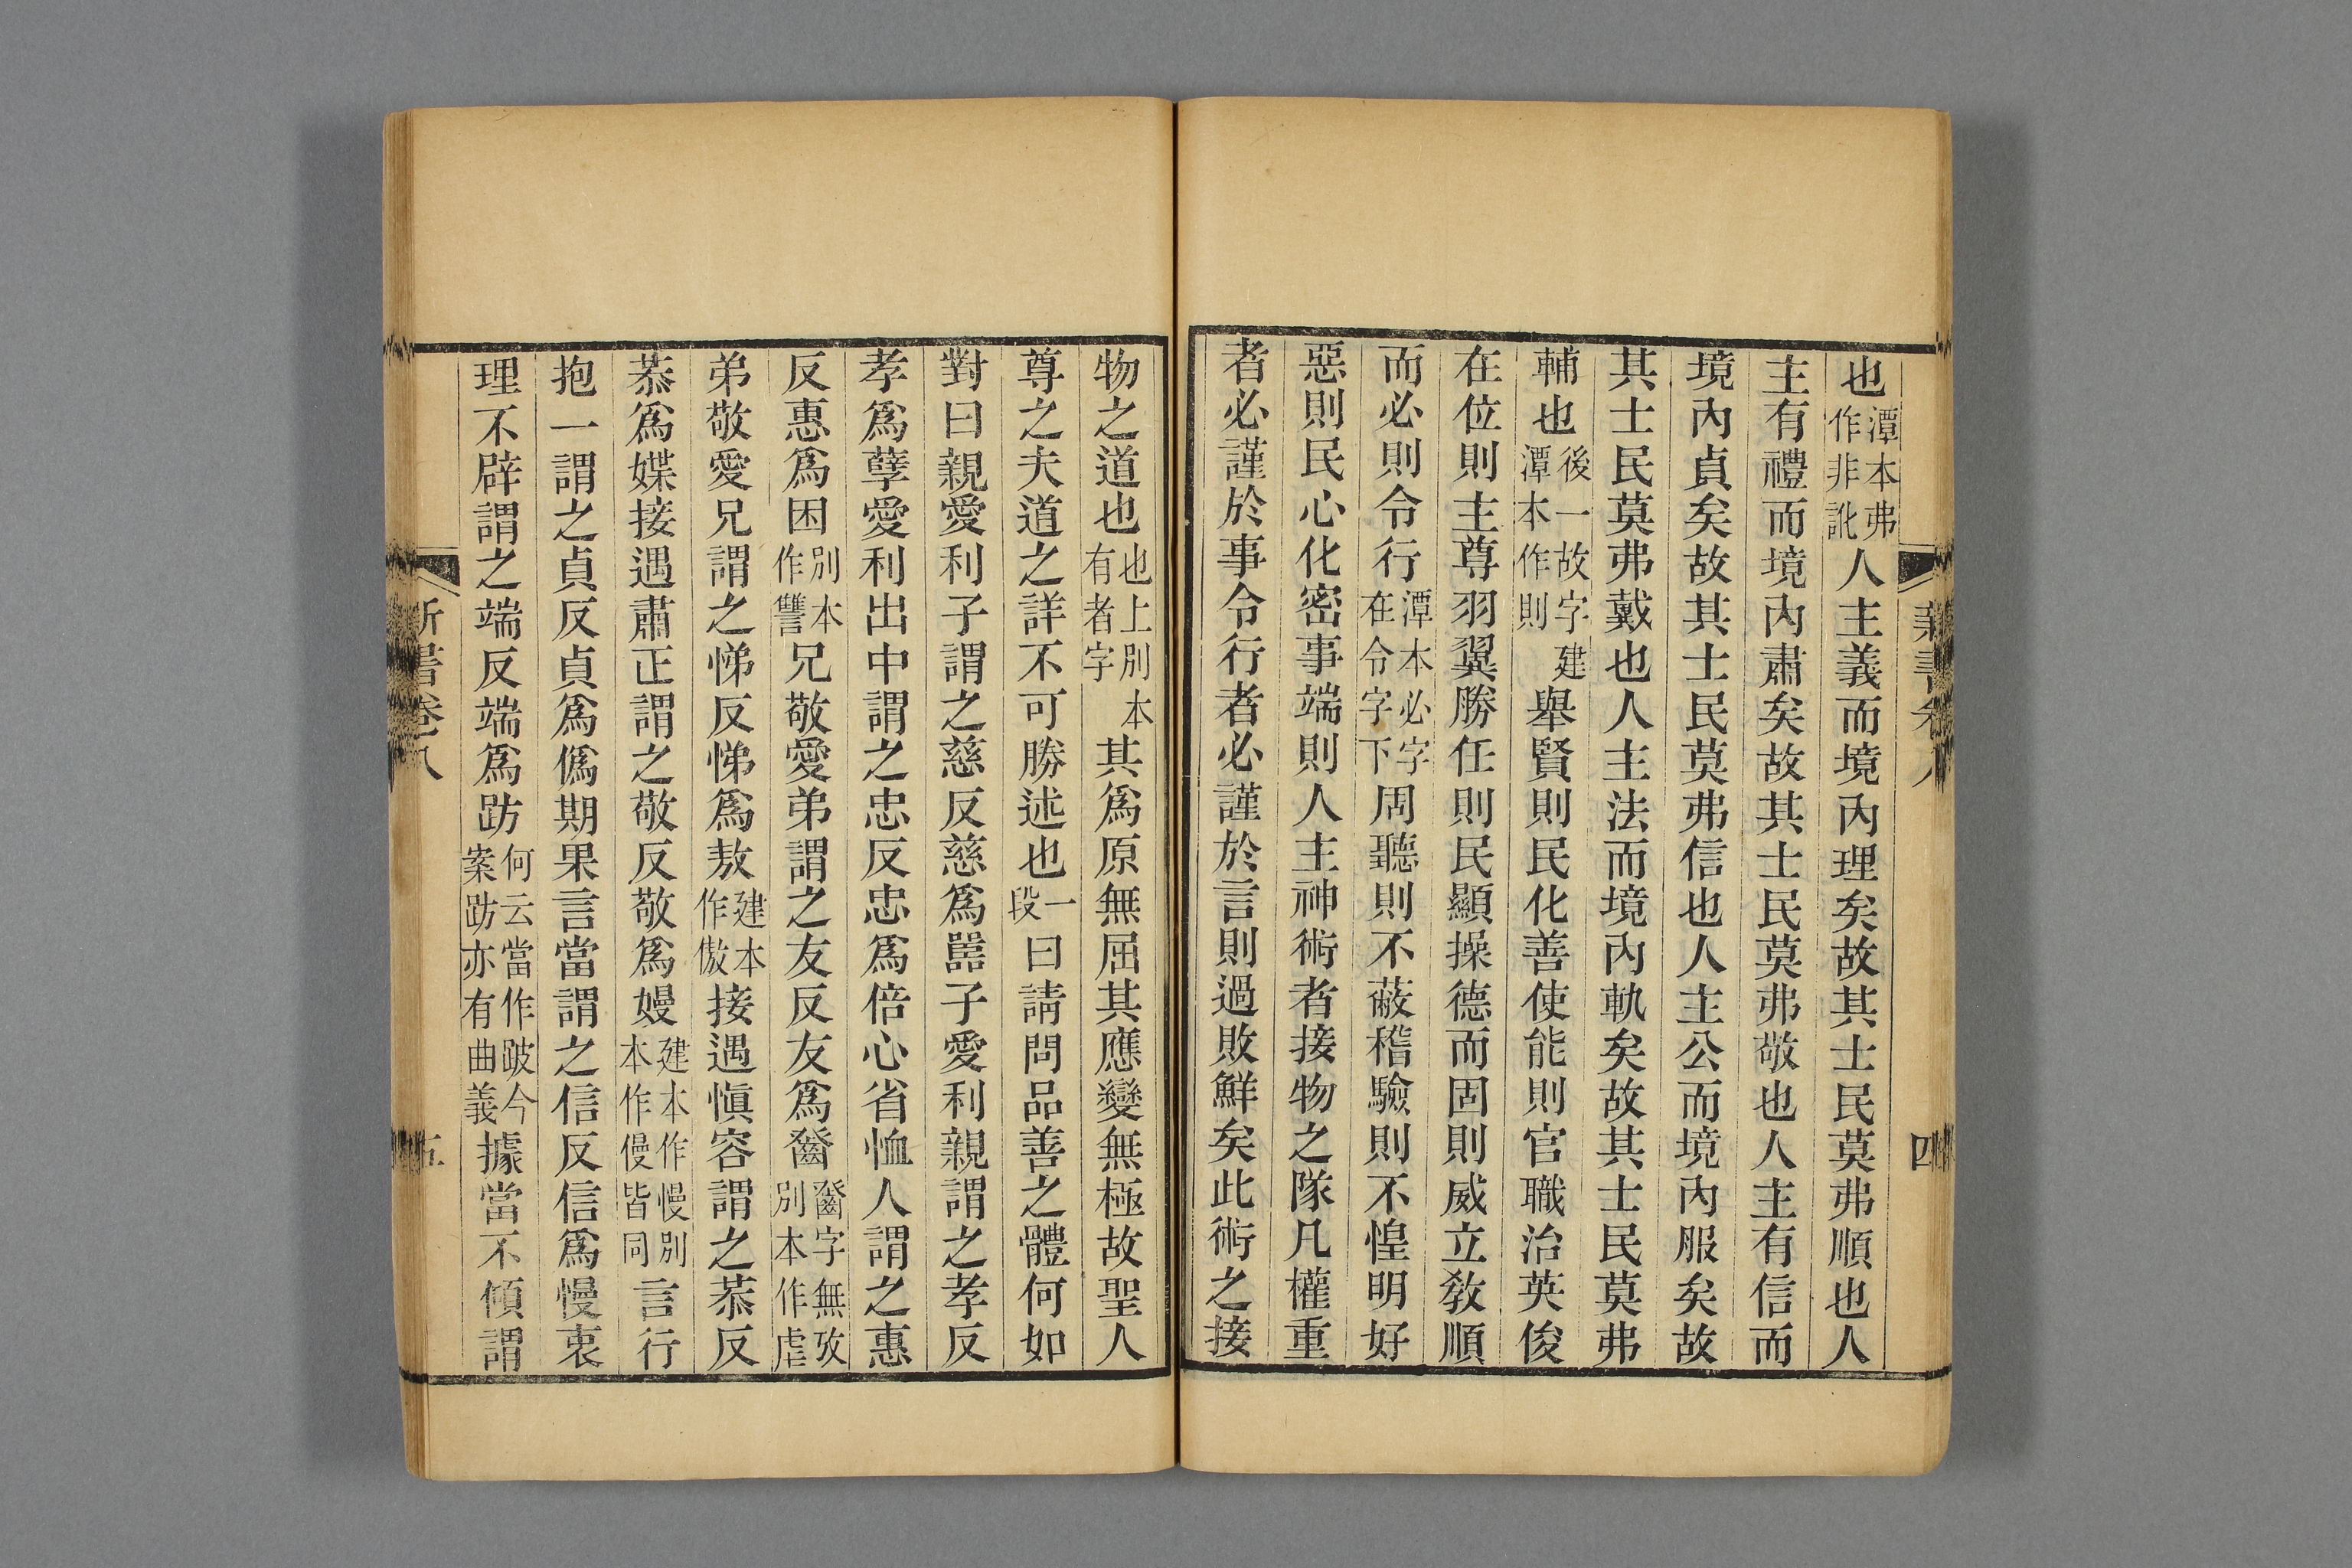 新書卷八
四
也潭本弗作非訛人主義而境內理矣故其士民莫弗順也人
主有禮而境內肅矣故其士民莫弗敬也人主有信而
境內貞矣故其士民莫弗信也人主公而境內服矣故
其士民莫弗戴也人主法而境內軌矣故其士民莫弗
輔也後一故字建潭本作則舉賢則民化善使能則官職治英俊
在位則主尊羽翼勝任則民顯操德而固則威立敎順
而必則令行潭本必字在令字下周聽則不蔽稽驗則不惶明好
惡則民心化密事端則人主神術者接物之隊凡權重
者必謹於事令行者必謹於言則過敗鮮矣此術之接
物之道也也上別本有者字其爲原無屈其應變無極故聖人
尊之夫道之詳不可勝述也一段曰請問品善之體何如
對曰親愛利子謂之慈反慈爲嚚子愛利親謂之孝反
孝爲孽愛利出中謂之忠反忠爲倍心省恤人謂之惠
反惠爲困別本作讐兄敬愛弟謂之友反友爲齤齤字無攷別本作虐
弟敬愛兄謂之悌反悌爲敖建本作傲接遇愼容謂之恭反
恭爲媟接遇肅正謂之敬反敬爲嫚建本作慢別本作僈皆同言行
抱一謂之貞反貞爲僞期果言當謂之信反信爲慢衷
理不辟謂之端反端爲趽何云當作跛今案趽亦有曲義據當不傾謂
新書卷八
五